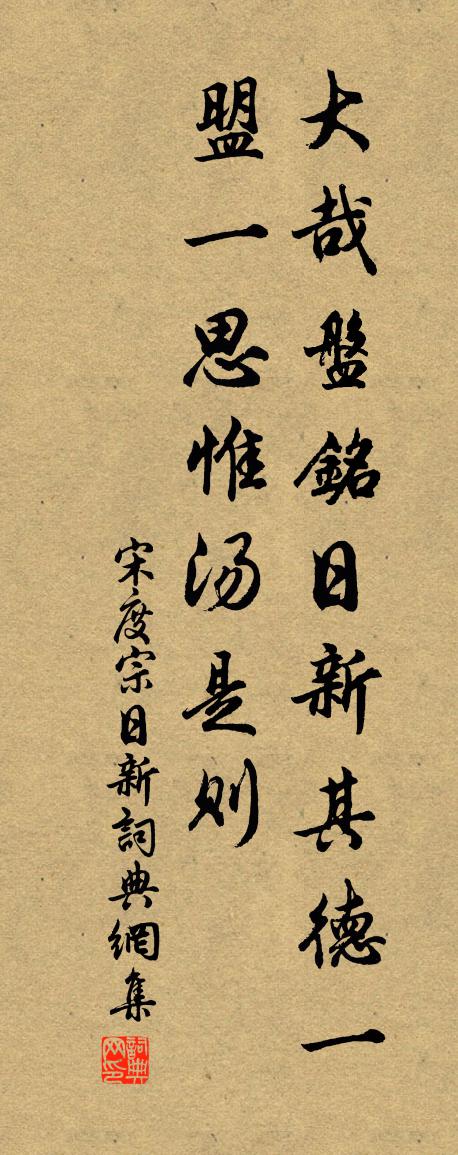 大哉盤銘日新其德一
盟一思惟汤是则
宋度宗日新詞典網集
詞典网印